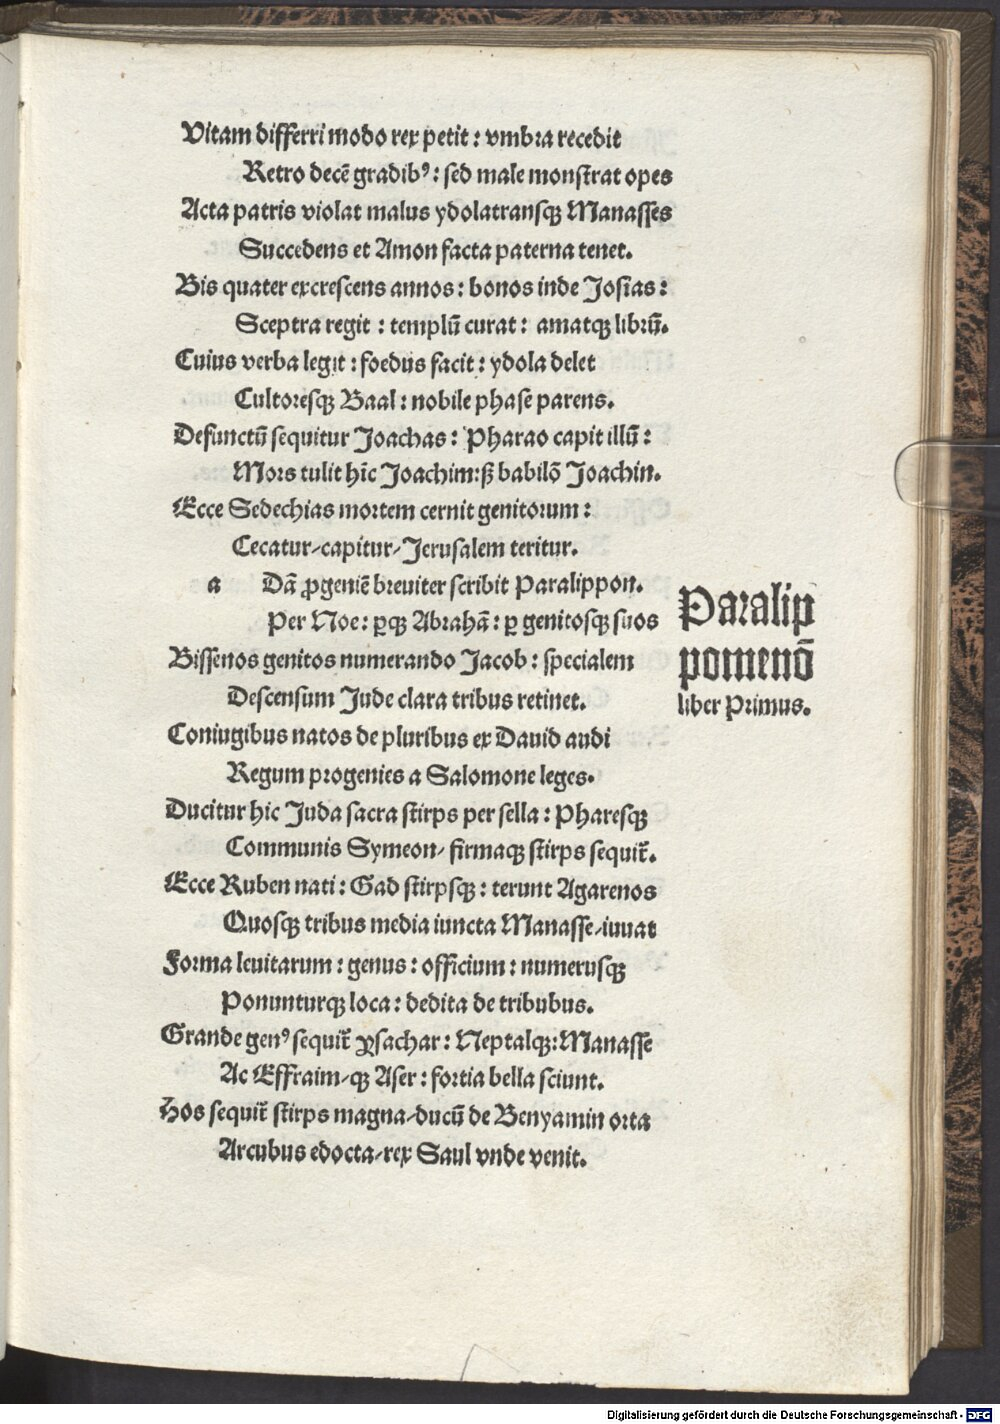 Vitam differri modo rex petit : vmbra recedit
Retro decē gradibꝰ : sed male monstrat opes
Acta patris violat malus ydolatransqꝫ Manasses
Succedens et Amon facta paterna tenet.
Bis quater excrescens annos : bonos inde Josias :
Sceptra regit : templū curat : amatqꝫ librū.
Cuius verba legit : foedus facit : ydola delet
Cultoresqꝫ Baal : nobile phase parens.
Defunctū sequitur Joachas : Pharao capit illū :
Mors tulit hīc Joachim: sꝫ babilō Joachin.
Ecce Sedechias mortem cernit genitorum :
Cecatur/capitur/Jerusalem teritur.
a Dā ꝓgeniē breuiter scribit Paralippon.
Per Noe : ꝑqꝫ Abrahā : ꝑ genitosqꝫ suos
Bissenos genitos numerando Jacob : specialem
Descensum Jude clara tribus retinet.
Coniugibus natos de pluribus ex Dauid audi
Regum progenies a Salomone leges.
Ducitur hic Juda sacra stirps per sella : Pharesqꝫ
Communis Symeon/ firmaqꝫ stirps sequit᷑.
Ecce Ruben nati : Gad stirpsqꝫ : terunt Agarenos
Quosqꝫ tribus media iuncta Manasse/iuuat
Forma leuitarum : genus : officium : numerusqꝫ
Ponunturqꝫ loca : dedita de tribubus.
Grande genꝰ sequit᷑ ysachar : Neptalqꝫ: Manasse
Ac Effraim/qꝫ Aser : fortia bella sciunt.
Hos sequit᷑ stirps magna/ducū de Benyamin orta
Arcubus edocta/rex Saul vnde venit.
Paralip
pomenō
liber Primus.
Digitalisierung gefördert durch die Deutsche Forschungsgemeinschaft - DFG